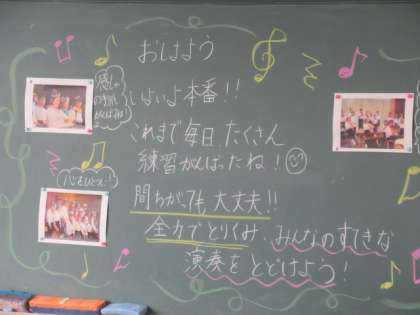 おはよう
いよいよ本番!!
これまで毎日、たくさん
練習がんばったね!
間ちがっても大丈夫!!
全力でとりくみ、みんなのすてきな
演奏をとどけよう!
感しゃ
の気持ち
心をひとつに!